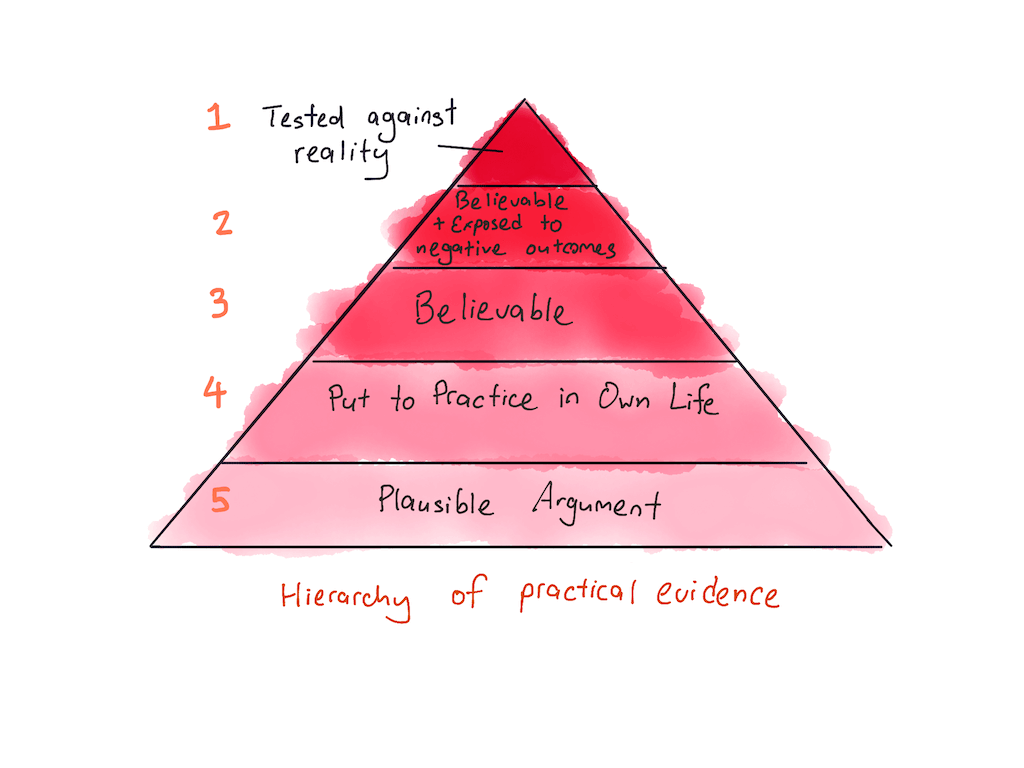 1 Tested against
reality
2 Believable
+ Exposed to
negative outcomes
3 Believable
4 Put to Practice in Own Life
5 Plausible Argument
Hierarchy of practical evidence